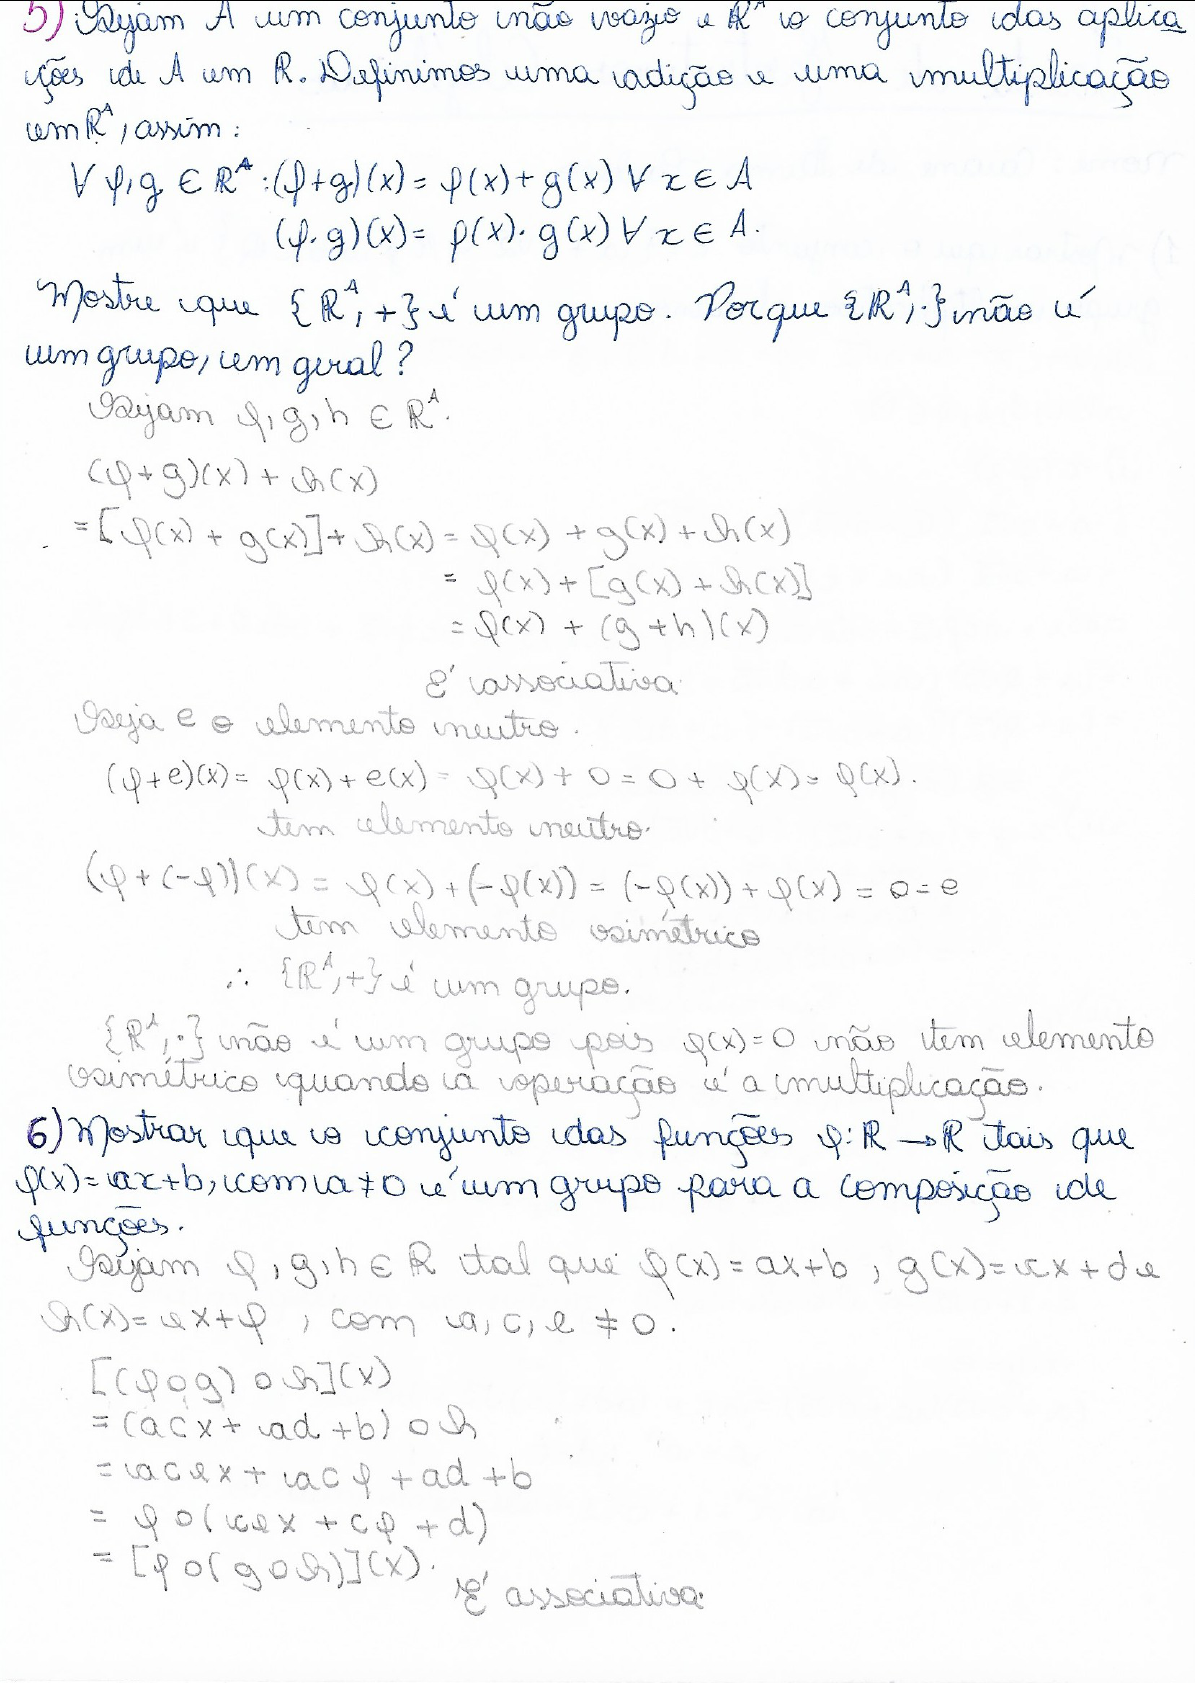 5) Sejam A um conjunto não vazio e ℝᴬ o conjunto das aplica
ções de A em ℝ. Definimos uma adição e uma multiplicação
em ℝᴬ, assim:
∀ f, g ∈ ℝᴬ : (f+g)(x) = f(x) + g(x) ∀ x ∈ A
(f·g)(x) = f(x)· g(x) ∀ x ∈ A.
Mostre que {ℝᴬ, +} é um grupo. Porque {ℝᴬ, ·} não é
um grupo, em geral?
Sejam f, g, h ∈ ℝᴬ.
(f+g)(x) + h(x)
= [f(x) + g(x)] + h(x) = f(x) + g(x) + h(x)
= f(x) + [g(x) + h(x)]
= f(x) + (g+h)(x)
É associativa.
Seja e o elemento neutro.
(f+e)(x) = f(x) + e(x) = f(x) + 0 = 0 + f(x) = f(x).
tem elemento neutro.
(f+(-f))(x) = f(x) + (-f(x)) = (-f(x)) + f(x) = 0 = e
tem elemento simétrico
∴ {ℝᴬ, +} é um grupo.
{ℝᴬ, ·} não é um grupo pois f(x)=0 não tem elemento
simétrico quando a operação é a multiplicação.
6) Mostrar que o conjunto das funções f: ℝ → ℝ tais que
f(x) = ax+b, com a ≠ 0 é um grupo para a composição de
funções.
Sejam f, g, h ∈ ℝ tal que f(x) = ax+b, g(x) = cx+d e
h(x) = ex+f, com a, c, e ≠ 0.
[(f∘g) ∘ h](x)
= (acx + ad + b) ∘ h
= acex + acf + ad + b
= f ∘ (cex + cf + d)
= [f ∘ (g ∘ h)](x).
É associativa.